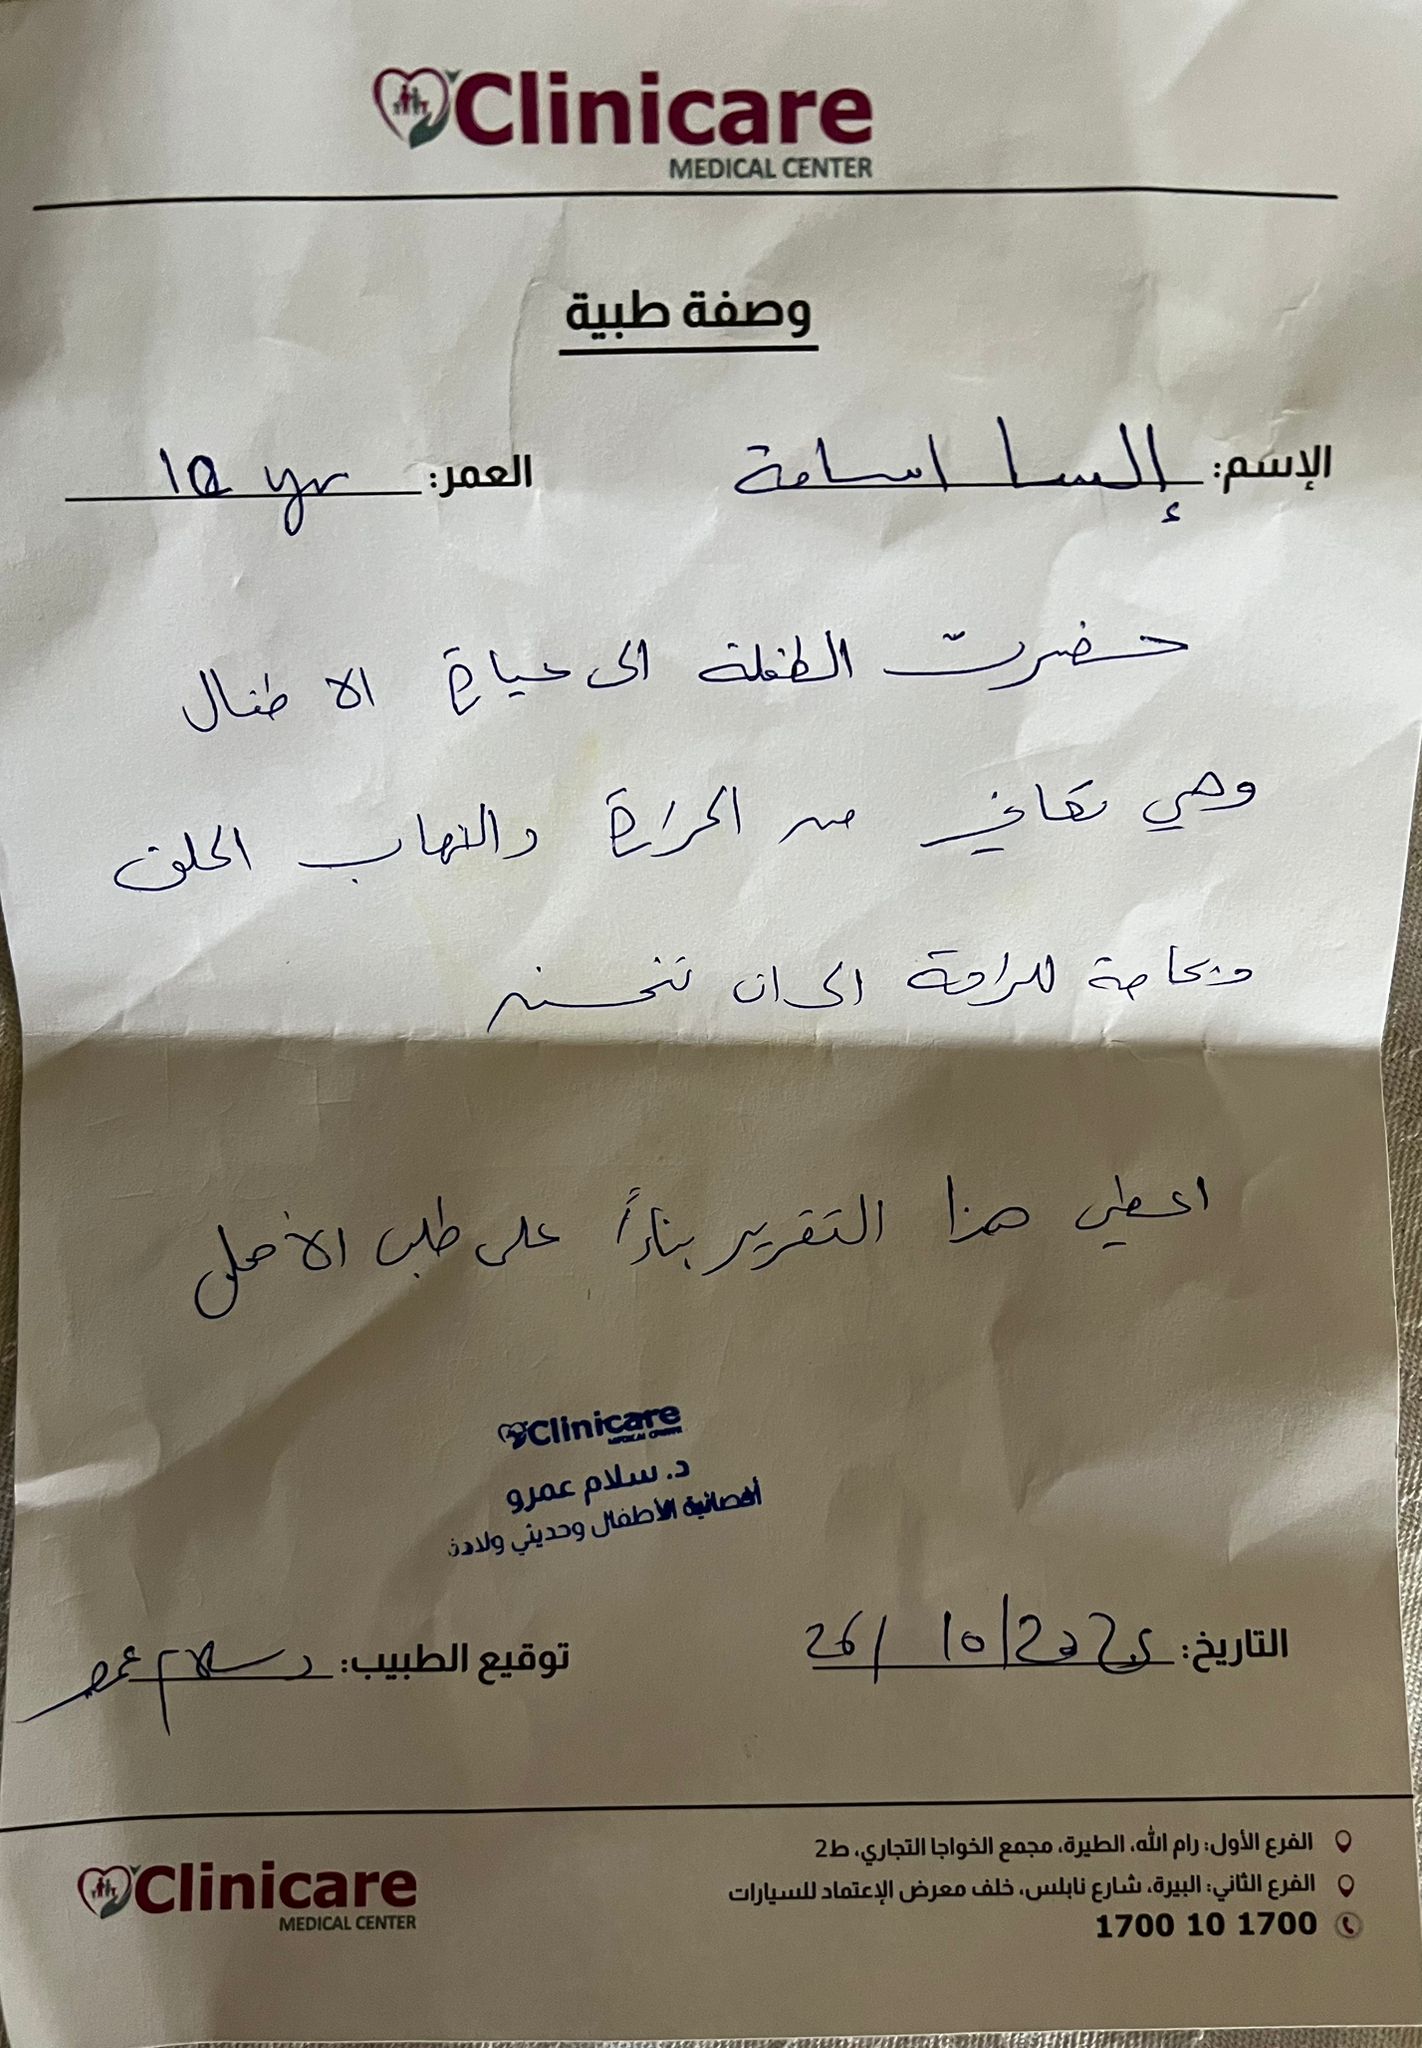 Clinicare
MEDICAL CENTER
وصفة طبية
الإسم: إلسا اسامة العمر: 10 yr
حضرت الطفلة الى عيادة الاطفال
وهي تعاني من الحرارة والتهاب الحلق
وبحاجة للراحة الى ان تتحسن
اعطي هذا التقرير بناءً على طلب الأهل
Clinicare
MEDICAL CENTER
د. سلام عمرو
أخصائية الأطفال وحديثي ولادة
التاريخ: 26/10/2025 توقيع الطبيب: د. سلام عمرو
الفرع الأول: رام الله، الطيرة، مجمع الخواجا التجاري، ط2
الفرع الثاني: البيرة، شارع نابلس، خلف معرض الإعتماد للسيارات
1700 10 1700
Clinicare
MEDICAL CENTER